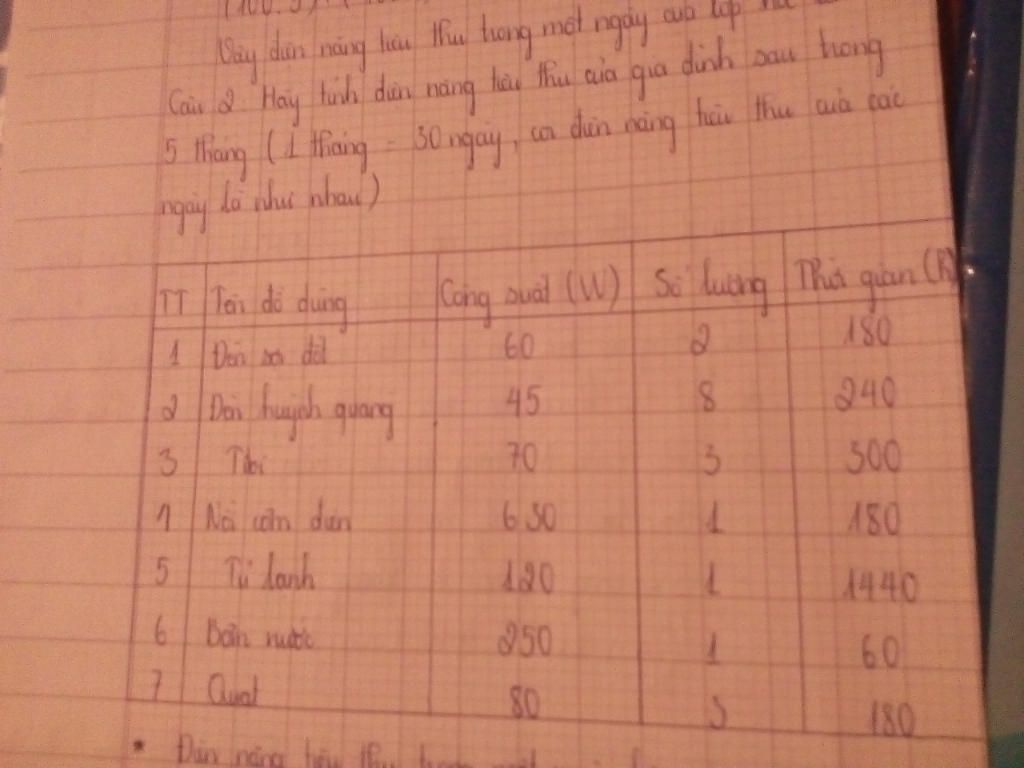 Vậy điện năng tiêu thụ trong một ngày của lớp
Câu 2. Hãy tính điện năng tiêu thụ của gia đình sau trong
5 tháng (1 tháng = 30 ngày, coi điện năng tiêu thụ của các
ngày là như nhau)
TT Tên đồ dùng Công suất (W) Số lượng Thời gian (h)
1 Đèn sợi đốt 60 2 180
2 Đèn huỳnh quang 45 8 240
3 Tivi 70 3 300
4 Nồi cơm điện 630 1 180
5 Tủ lạnh 120 1 1440
6 Bơm nước 250 1 60
7 Quạt 80 3 180
* Điện năng tiêu thụ trong một